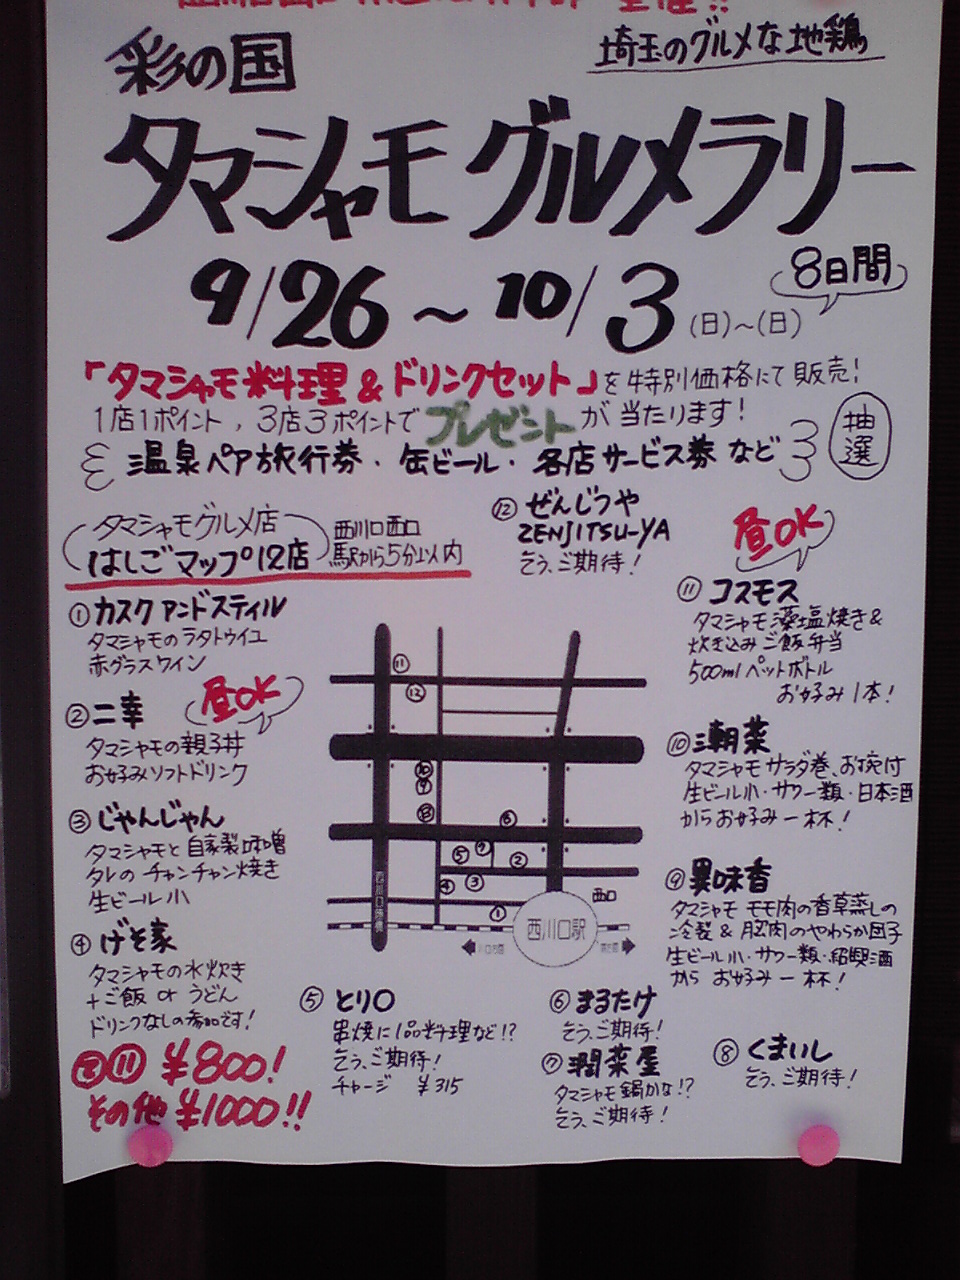 彩の国
埼玉のグルメな地鶏
タマシャモグルメラリー
9/26～10/3(日)～(日)
8日間
「タマシャモ料理&ドリンクセット」を特別価格にて販売!
1店1ポイント,3店3ポイントでプレゼントが当たります!
抽選
温泉ペア旅行券・缶ビール・各店サービス券など
タマシャモグルメ店
はしごマップ12店
西川口西口
駅から5分以内
⑫ぜんじつや
ZENJITSU-YA
乞う、ご期待!
昼OK
⑪コスモス
タマシャモ藻塩焼き&
炊き込みご飯弁当
500mlペットボトル
お好み1本!
①カスクアンドスティル
タマシャモのラタトゥイユ
赤グラスワイン
昼OK
②二幸
タマシャモの親子丼
お好みソフトドリンク
③じゃんじゃん
タマシャモと自家製味噌
タレのチャンチャン焼き
生ビール小
④げそ家
タマシャモの水炊き
+ご飯orうどん
ドリンクなしの参加です!
②⑪¥800!
その他¥1000!!
⑩潮菜
タマシャモサラダ巻、お椀付
生ビール小・サワー類・日本酒
からお好み一杯!
⑨異味香
タマシャモモモ肉の香草蒸しの
冷製&胸肉のやわらか団子
生ビール小・サワー類・紹興酒
からお好み一杯!
⑪
⑫
⑩
⑨
⑧
⑥
⑤
⑦
②
④
③
①
西口
西川口駅
⑤とり〇
串焼に1品料理など!?
乞う、ご期待!
チャージ ¥315
⑥まるたけ
乞う、ご期待!
⑦潤菜屋
タマシャモ鍋かな!?
乞う、ご期待!
⑧くまいし
乞う、ご期待!